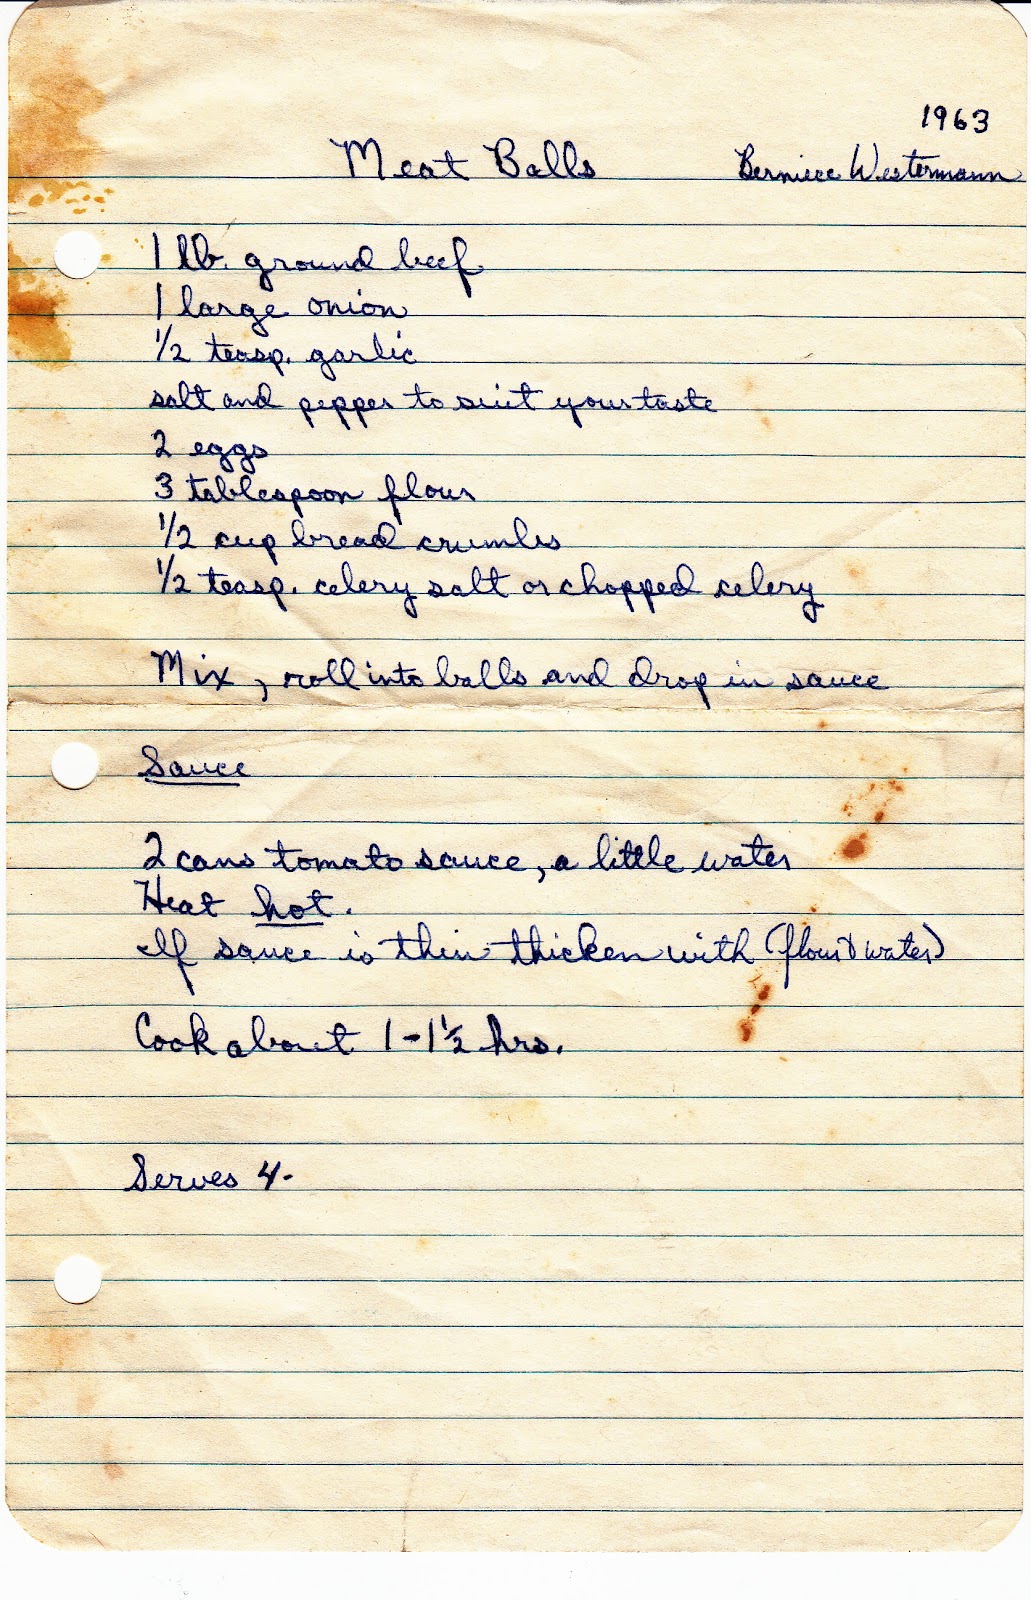 1963
Meat Balls Berniece Westermann
1 lb. ground beef
1 large onion
1/2 teasp. garlic
salt and pepper to suit your taste
2 eggs
3 tablespoon flour
1/2 cup bread crumbs
1/2 teasp. celery salt or chopped celery
Mix, roll into balls and drop in sauce
Sauce
2 cans tomato sauce, a little water
Heat hot.
If sauce is thin thicken with (flour & water)
Cook about 1-1 1/2 hrs.
Serves 4.